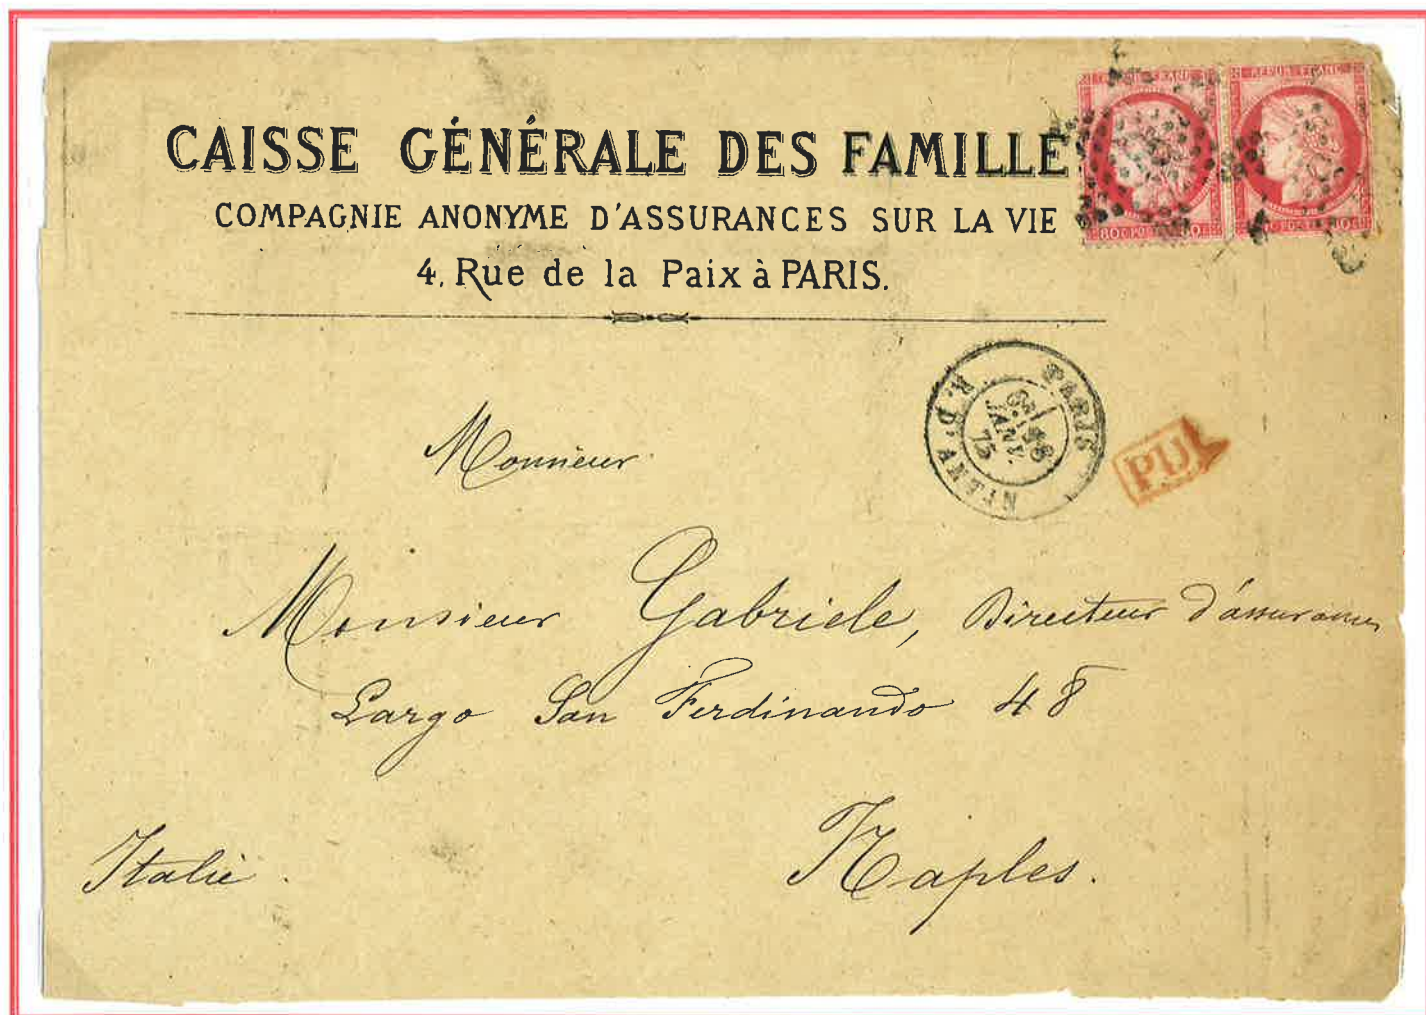 CAISSE GÉNÉRALE DES FAMILLE
COMPAGNIE ANONYME D'ASSURANCES SUR LA VIE
4, Rue de la Paix à PARIS.
REPUB FRANC
80 C PO
PARIS
R. D'ANTIN
JANV.
75
Monsieur
Monsieur Gabriele, Directeur d'assurances
Largo San Ferdinando 48
Naples.
Italie.